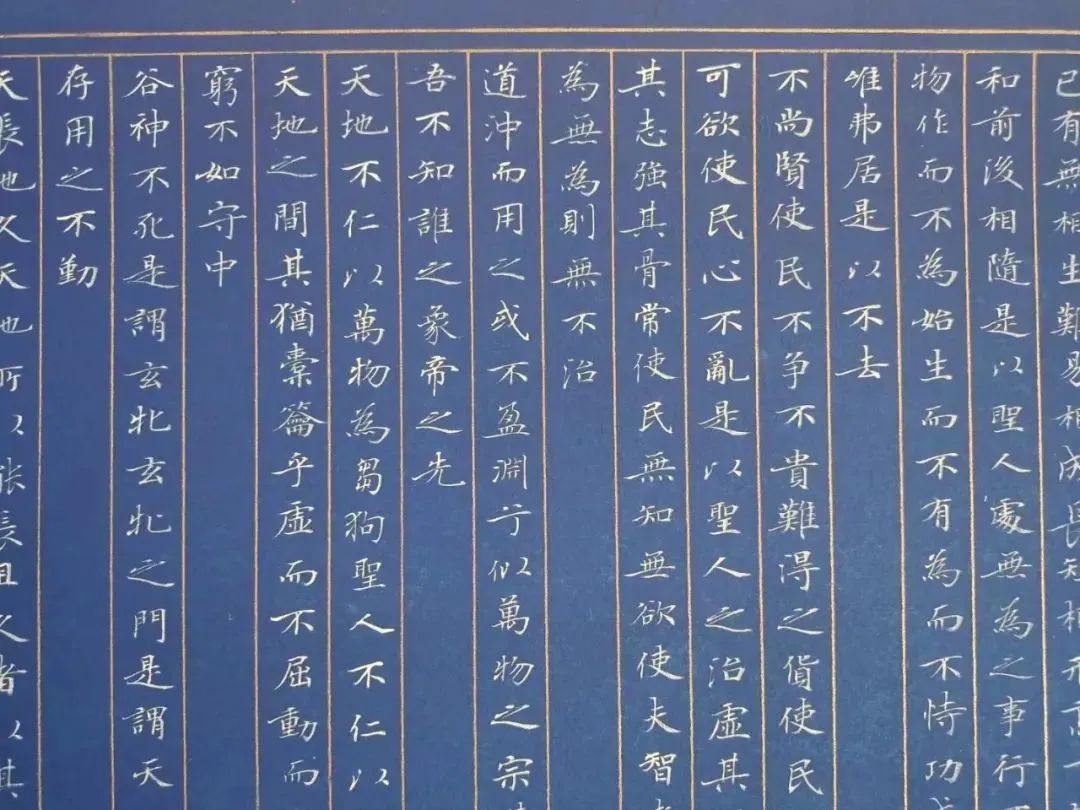 已有無相生難易相成長短相
和前後相隨是以聖人處無為之事行
物作而不為始生而不有為而不恃功
唯弗居是以不去
不尚賢使民不爭不貴難得之貨使民
可欲使民心不亂是以聖人之治虛其
其志強其骨常使民無知無欲使夫智
為無為則無不治
道沖而用之或不盈淵兮似萬物之宗
吾不知誰之象帝之先
天地不仁以萬物為芻狗聖人不仁以
天地之間其猶橐籥乎虛而不屈動而
窮不如守中
谷神不死是謂玄牝玄牝之門是謂天
存用之不勤
天長地久天地所以長且久者以其